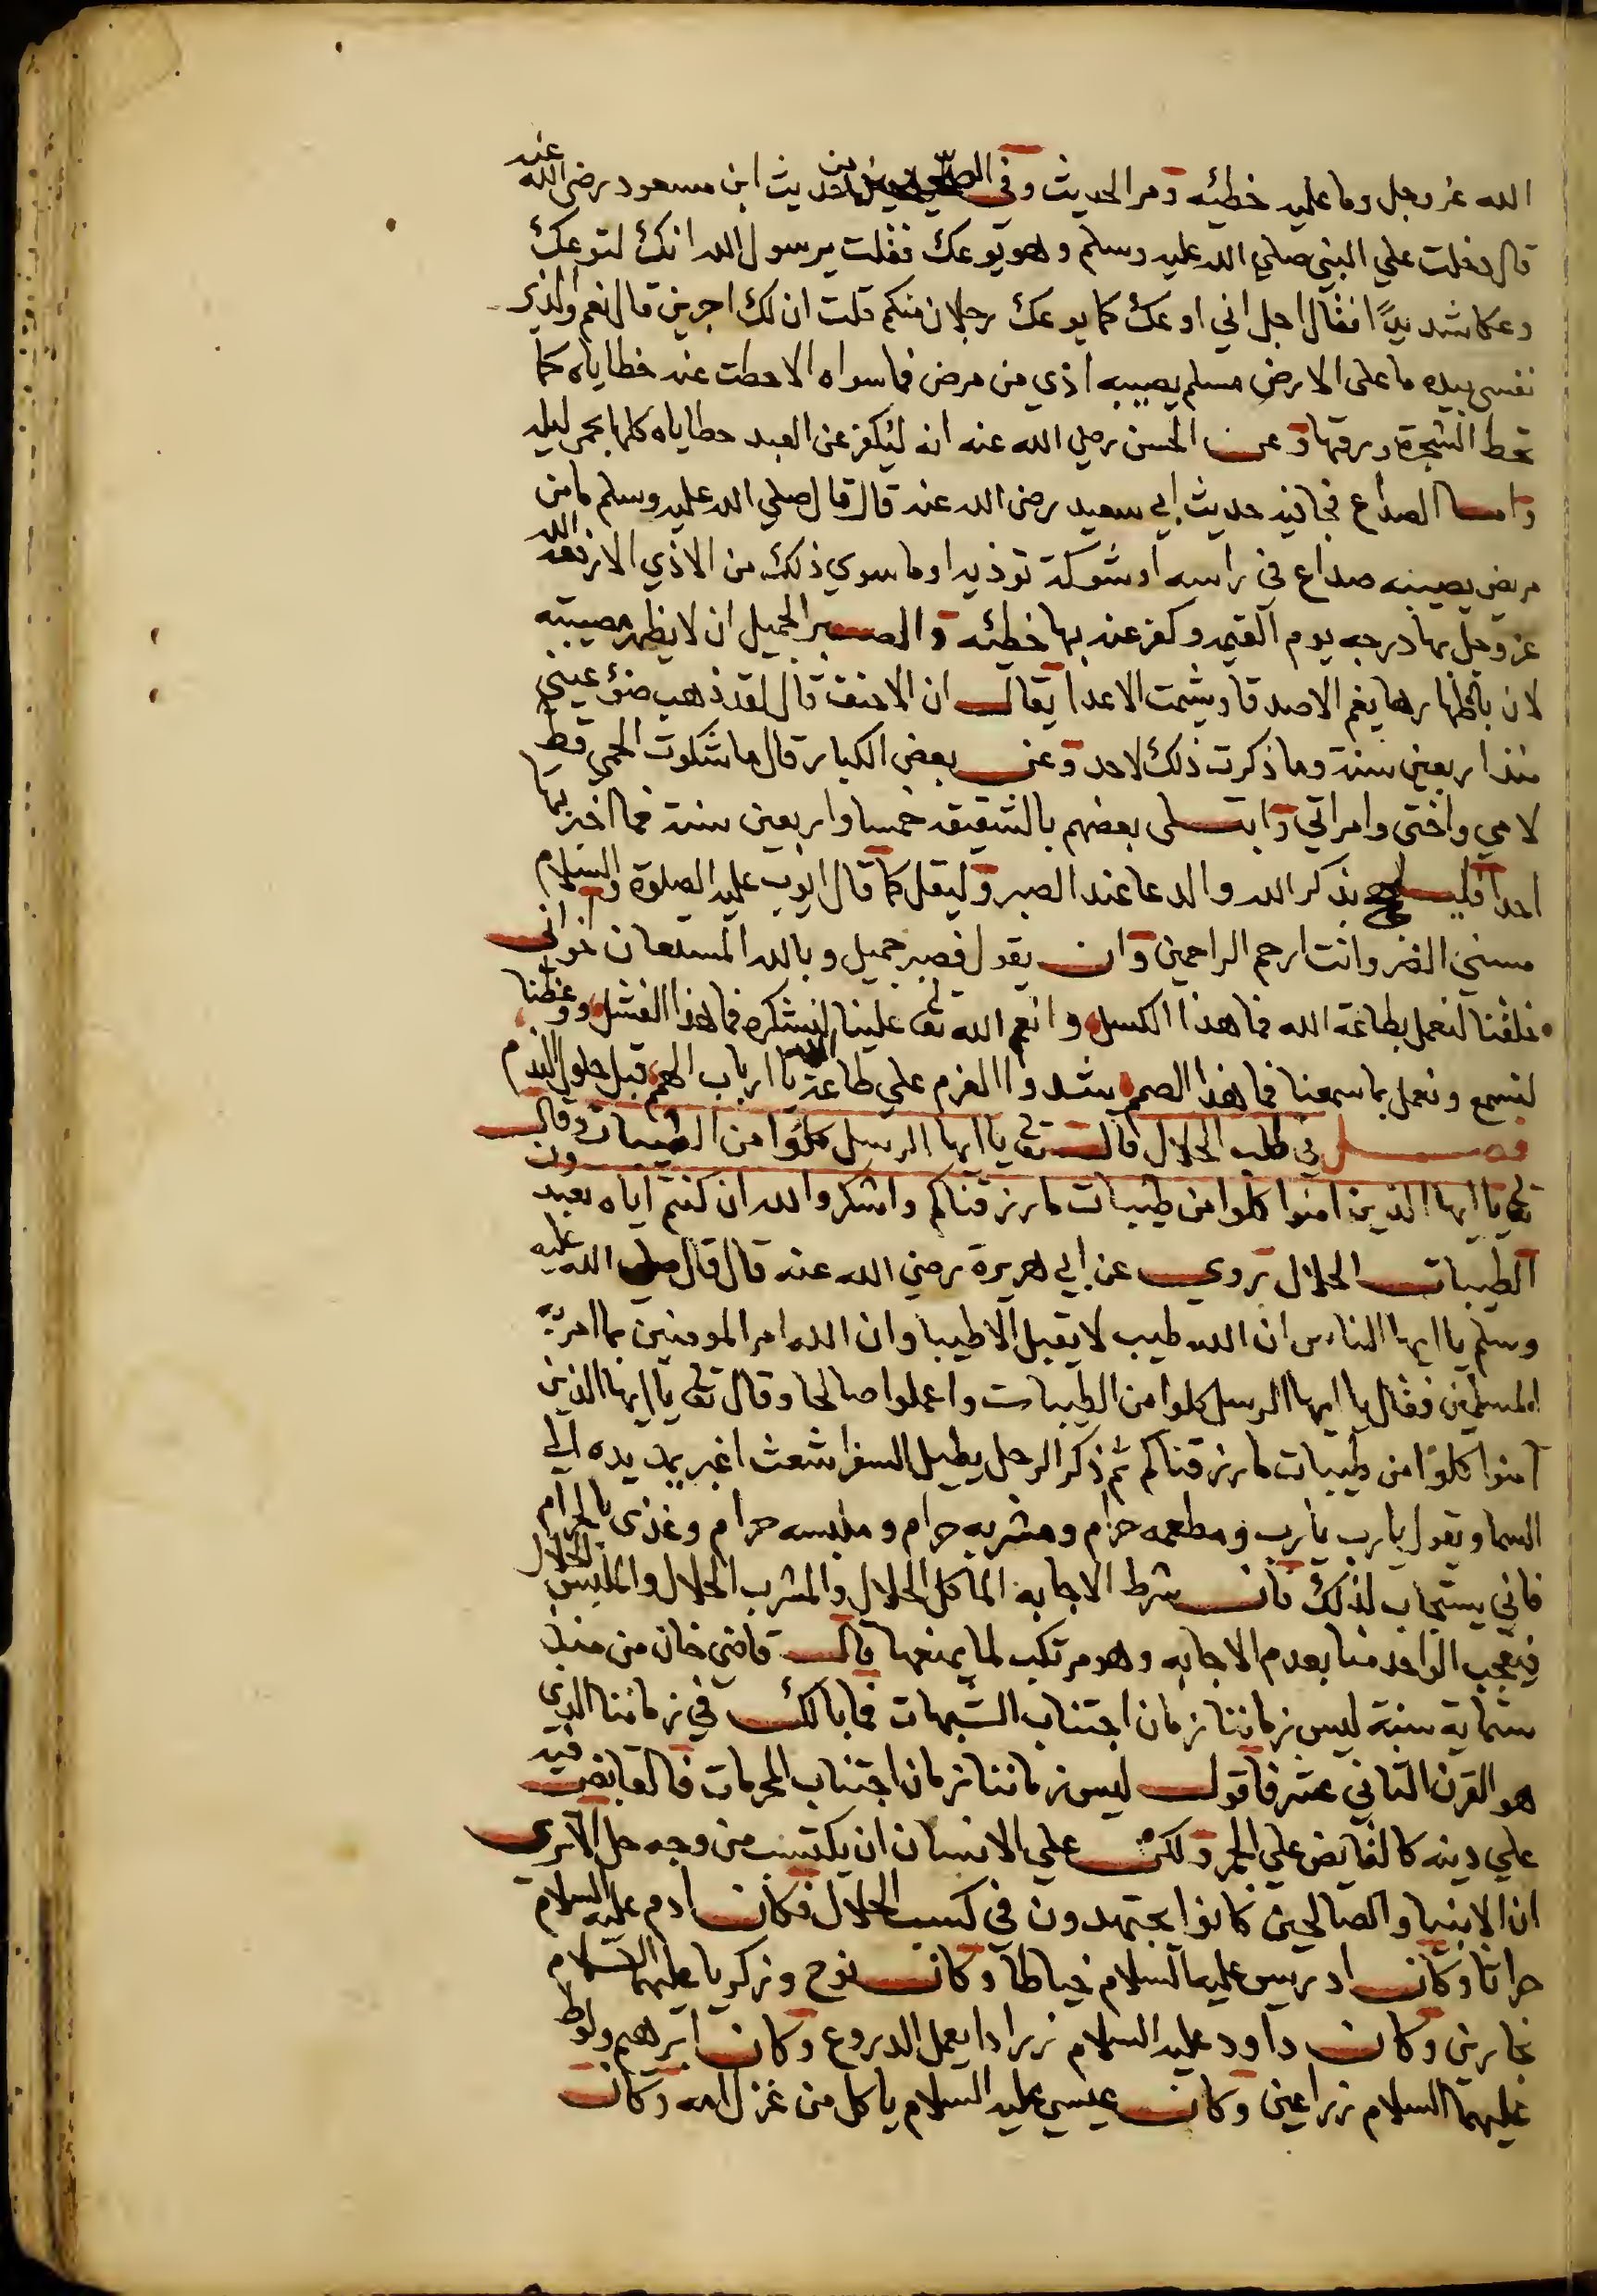 الله عز وجل وما عليه خطئه ومر الحديث وفي الصحيحين من حديث ابن مسعود رضي الله عنه
قال دخلت علي النبي صلي الله عليه وسلم وهو يوعك فقلت يرسول الله انك لتوعك
وعكا شديدًا فقال اجل اني اوعك كما يوعك رجلان منكم قلت ان لك اجرين قال نعم والذي
نفسي بيده ما على الارض مسلم يصيبه اذي من مرض فما سواه الا حطت عنه خطاياه كما
تحط الشجرة ورقها وعن الحسن رضي الله عنه انه ليكفر عن العبد خطاياه كلها بحمى ليله
واما الصداع فجا فيه حديث ابي سعيد رضي الله عنه قال قال صلي الله عليه وسلم ما من
مريض يصيبه صداع في راسه او شوكة توذيه او ما سوي ذلك من الاذي الا رفعه الله
عز وجل بها درجه يوم القيمه وكفر عنه بها خطئه والصبر الجميل ان لا يظهر مصيبته
لان باظهارها يغم الاصدقا ويشمت الاعدا يقال ان الاحنف قال لقد ذهب ضوؤ عيني
منذ اربعين سنة وما ذكرت ذلك لاحد وعن بعض الكبار قال ما شكوت الحمي قط
لامي واختي وامراتي وابتلى بعضهم بالشقيقه خمسا واربعين سنة فما اخبر بها
احدا فليلهج بذكر الله والدعا عند الصبر وليقل كما قال ايوب عليه الصلوة والسلام
مسني الضر وانت ارحم الراحمين وان يقول فصبر جميل وبالله المستعان اخواني
خلقنا لنعمل بطاعة الله فما هذا الكسل وانعم الله تعالى علينا لنشكره فما هذا الفشل ووعظنا
لنسمع ونعمل بما سمعنا فما هذا الصمم شدوا العزم علي طاعة الله يا ارباب الهمم قبل حلول الندم
فصل في طلب الحلال قال تعالى يا ايها الرسل كلوا من الطيبات وقال
تعالى يا ايها الذين امنوا كلوا من طيبات ما رزقناكم واشكروا لله ان كنتم اياه تعبدون
الطيبات الحلال روي عن ابي هريرة رضي الله عنه قال قال صلى الله عليه
وسلم يا ايها الناس ان الله طيب لا يقبل الا طيبا وان الله امر المومنين بما امر به
المرسلين فقال يا ايها الرسل كلوا من الطيبات واعملوا صالحا وقال تعالى يا ايها الذين
آمنوا كلوا من طيبات ما رزقناكم ثم ذكر الرجل يطيل السفر اشعث اغبر يمد يده الي
السما ويقول يا رب يا رب ومطعمه حرام ومشربه حرام وملبسه حرام وغذى بالحرام
فاني يستجاب لذلك فان شرط الاجابه الماكل الحلال والمشرب الحلال والملبس الحلال
فيعجب الواحد منا بعدم الاجابه وهو مرتكب لما يمنعها قال قاضي خان من منذ
ستماية سنة ليس زماننا زمان اجتناب الشبهات فما بالك في زماننا الذي
هو القرن الثاني عشر فاقول ليس زماننا زمان اجتناب المحرمات فالقابض فيه
علي دينه كالقابض علي الجمر ولكن علي الانسان ان يكتسب من وجه حل الا ترى
ان الانبيا والصالحين كانوا يجتهدون في كسب الحلال فكان ادم عليه السلام
حراثا وكان ادريس عليه السلام خياطا وكان نوح وزكريا عليهما السلام
نجارين وكان داود عليه السلام زرادا يعمل الدروع وكان ابرهيم ولوط
عليهما السلام زراعين وكان عيسي عليه السلام ياكل من غزل امه وكان